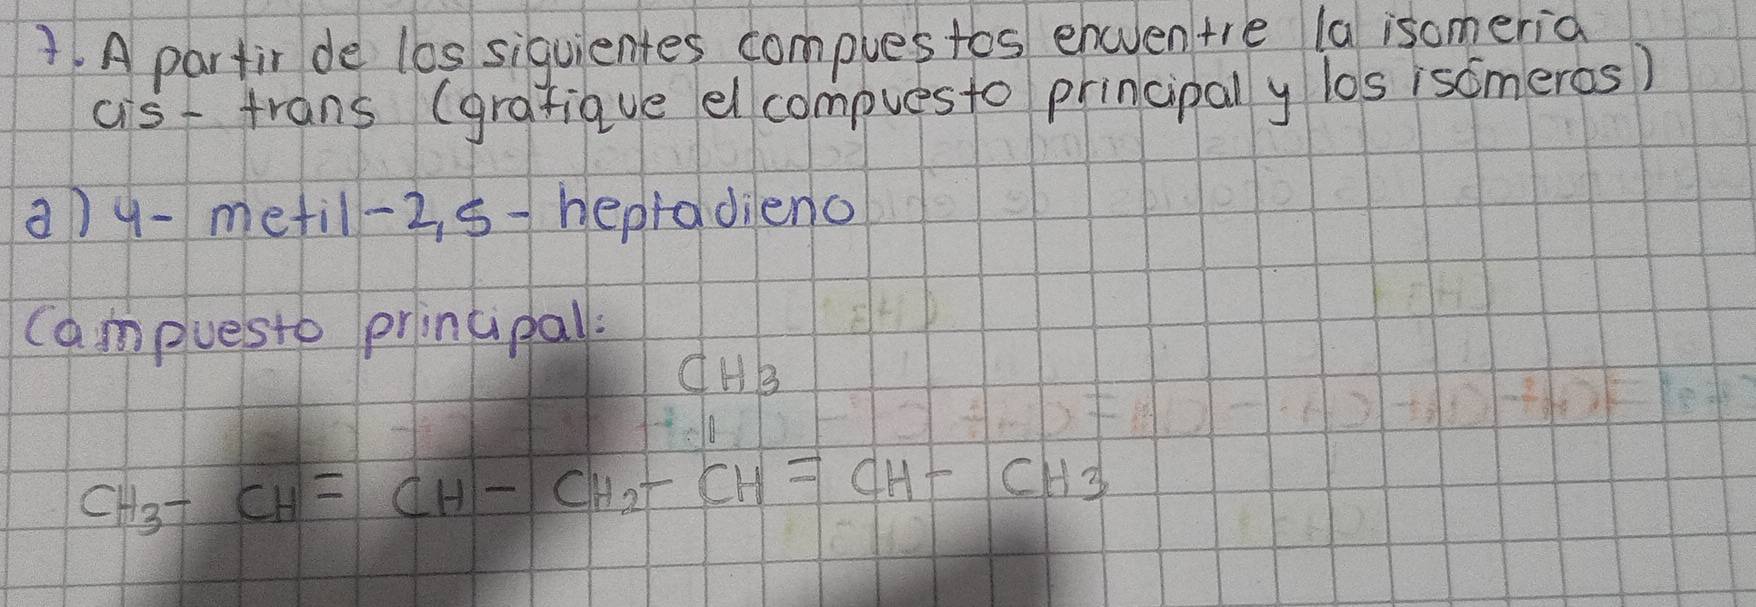 7. A partir de los siguientes compuestos encuentre la isomeria
cis - trans (grafique el compuesto principal y los isómeros)
a) 4 - metil - 2,5 - heptadieno
Compuesto principal:
CH3
|
CH3 - CH = CH - CH2 - CH = CH - CH3